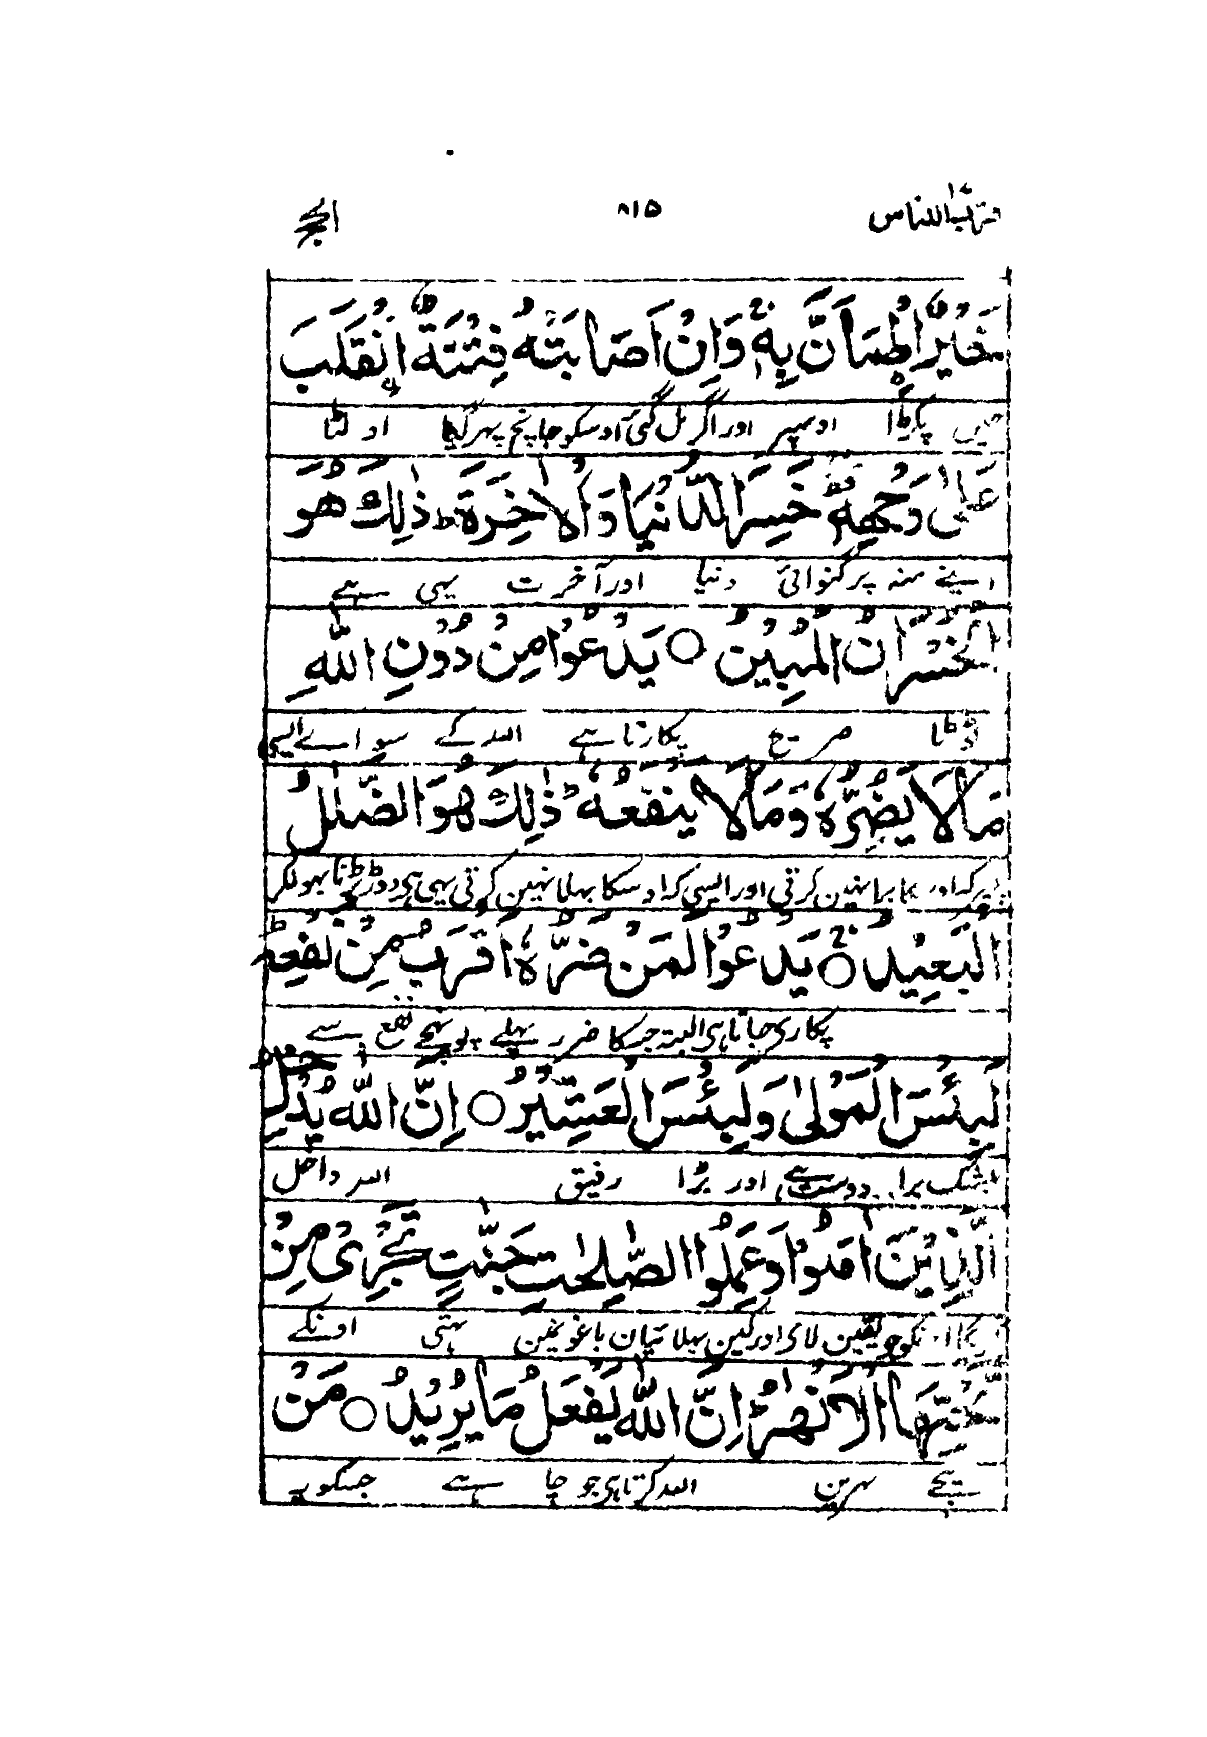 اقترب للناس ۸۱۵ الحج
خَيْرُ ۨاطْمَاَنَّ بِهٖ ۚ وَاِنْ اَصَابَتْهُ فِتْنَةُ ۨانْقَلَبَ
چین پکڑا اوسپر اور اگر مل گئی اوسکو جانچ پھر گیا اولٹا
عَلٰى وَجْهِهٖ ۚ خَسِرَ الدُّنْيَا وَالْاٰخِرَةَ ؕ ذٰلِكَ هُوَ
اپنے منہ پر گنوائی دنیا اور آخرت یہی ہے
الْخُسْرَانُ الْمُبِيْنُ ○ يَدْعُوْا مِنْ دُوْنِ اللّٰهِ
ٹوٹا صریح پکارتا ہے اللہ کے سواے ایسی
مَا لَا يَضُرُّهٗ وَمَا لَا يَنْفَعُهٗ ؕ ذٰلِكَ هُوَ الضَّلٰلُ
چیز کہ اوسکا برا نہین کرتی اور ایسی کہ اوسکا بھلا نہین کرتی یہی ہی دور پڑنا بھولکر
الْبَعِيْدُ ○ ۚ يَدْعُوْا لَمَنْ ضَرُّهٗۤ اَقْرَبُ مِنْ نَّفْعِهٖ ؕ
پکاری جاتا ہی البتہ جسکا ضرر پہلے پہنچے نفع سے
لَبِئْسَ الْمَوْلٰى وَلَبِئْسَ الْعَشِيْرُ ○ اِنَّ اللّٰهَ يُدْخِلُ
بیشک برا دوست ہے اور برا رفیق اللہ داخل
الَّذِيْنَ اٰمَنُوْا وَعَمِلُوا الصّٰلِحٰتِ جَنّٰتٍ تَجْرِيْ مِنْ
کریگا اونکو جو یقین لای اور کین بھلائیان باغونمین بہتی اونکے
تَحْتِهَا الْاَنْهٰرُ ؕ اِنَّ اللّٰهَ يَفْعَلُ مَا يُرِيْدُ ○ مَنْ
نیچے نہرین اللہ کرتا ہی جو چاہے جسکو